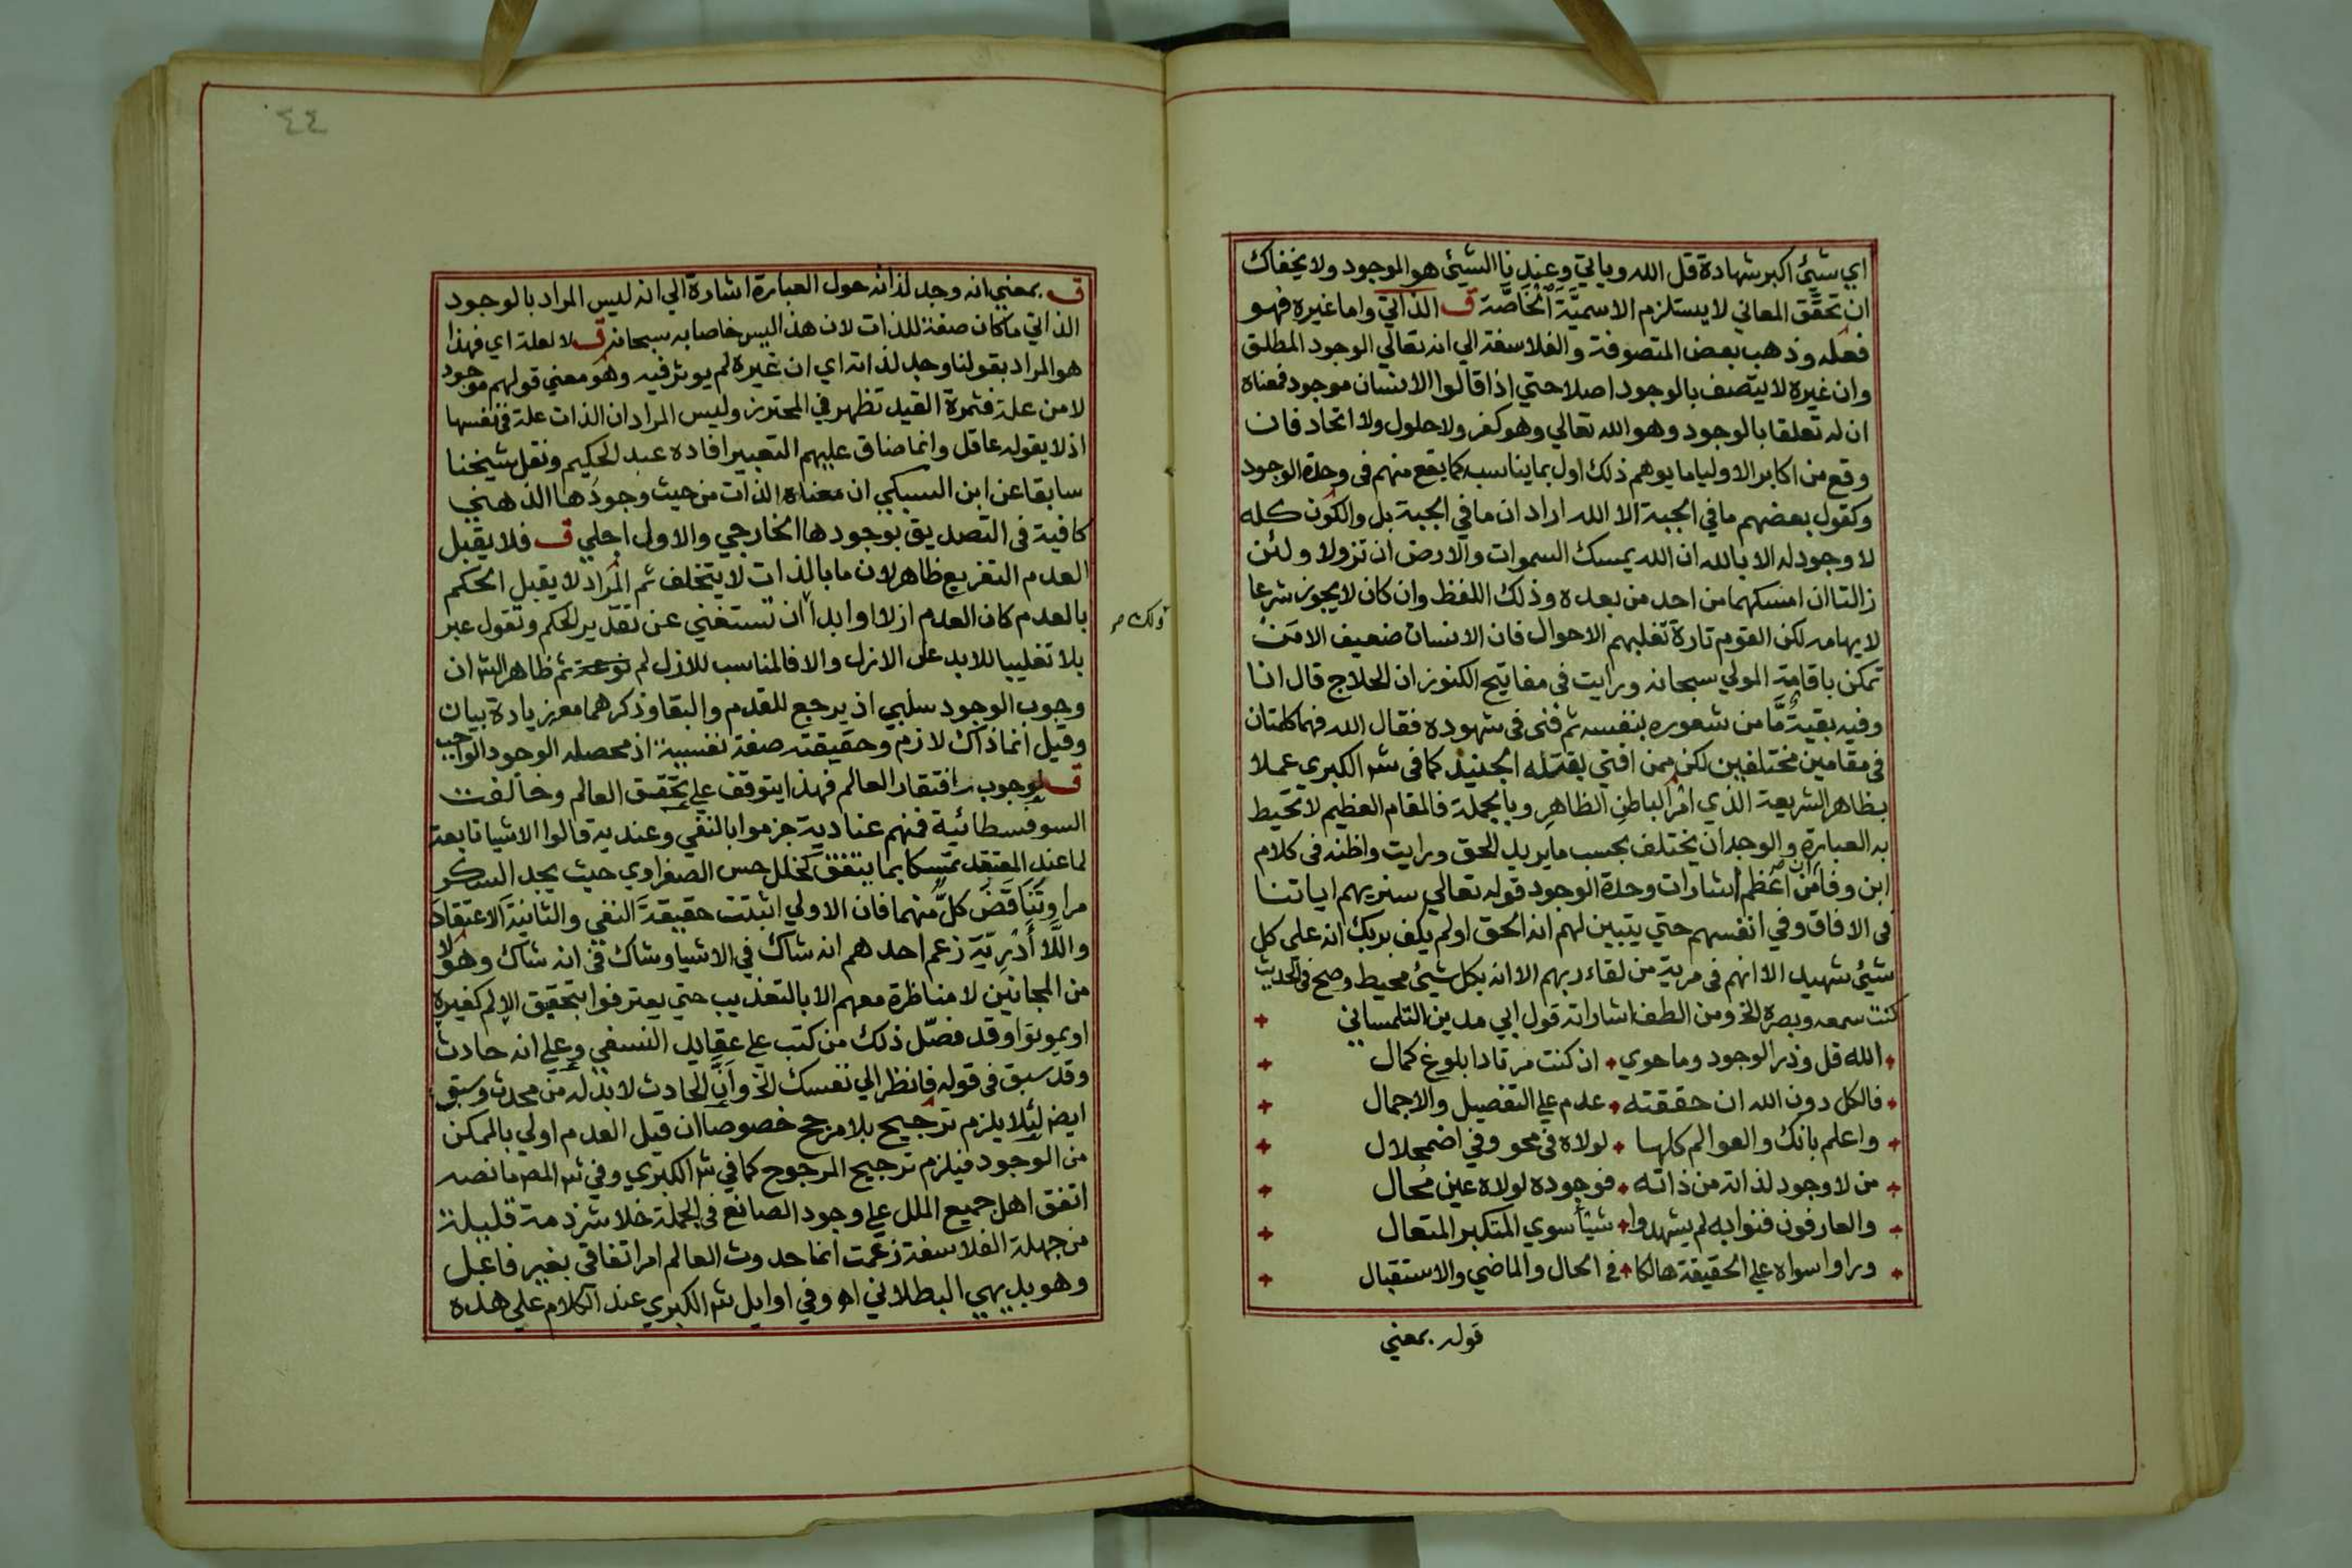 اي شيئ اكبر شهادة قل الله وياتي وعندنا الشيئ هو الموجود ولا يخفاك
ان تحقق المعاني لا يستلزم الاسميَّة الخاصَّة ق الذاتي واما غيره فهو
فعله وذهب بعض المتصوفة والفلاسفة الي انه تعالي الوجود المطلق
وان غيره لا يتصف بالوجود اصلا حتي اذا قالوا الانسان موجود فمعناه
ان له تعلقا بالوجود وهو الله تعالي وهو كفر ولا حلول ولا اتحاد فان
وقع من اكابر الاوليا ما يوهم ذلك اول بما يناسبه كما يقع منهم في وحدة الوجود
وكقول بعضهم ما في الجبة الا الله اراد ان ما في الجبة بل والكون كله
لا وجود له الا بالله ان الله يمسك السموات والارض ان تزولا ولئن
زالتا ان امسكهما من احد من بعده وذلك اللفظ وان كان لا يجوز شرعا
لايهامه لكن القوم تارة تغلبهم الاحوال فان الانسان ضعيف الا من
تمكن باقامة المولي سبحانه ورايت في مفاتيح الكنوز ان الحلاج قال انا
وفيه بقيةٌ مَّا من شعوره بنفسه ثم فني في شهوده فقال الله فهما كلمتان
في مقامين مختلفين لكن ممن افتي بقتله الجنيد كما في شر الكبري عملا
بظاهر الشريعة الذي امر الباطن الظاهر وبالجملة فالمقام العظيم لا تحيط
به العبارة والوجدان يختلف بحسب ما يريد الحق ورايت واظنه في كلام
ابن وفا ان من اعظم اشارات وحدة الوجود قوله تعالي سنريهم اياتنا
في الافاق وفي انفسهم حتي يتبين لهم انه الحق اولم يكف بربك انه علي كل
شيئ شهيد الا انهم في مرية من لقاء ربهم الا انه بكل شيئ محيط وصح في الحديث
كنت سمعه وبصره الخ ومن الطف اشاراته قول ابي مدين التلمساني
الله قل وذر الوجود وما حوي ٠ ان كنت مرتادا بلوغ كمال
فالكل دون الله ان حققته ٠ عدم علي التفصيل والاجمال
واعلم بانك والعوالم كلها ٠ لولاه في محو وفي اضمحلال
من لا وجود لذاته من ذاته ٠ فوجوده لولاه عين مُحال
والعارفون فنوا به لم يشهدوا ٠ شيأ سوي المتكبر المتعال
وراوا سواه علي الحقيقة هالكا ٠ في الحال والماضي والاستقبال
قوله بمعني
٤٤
ق بمعني انه وجد لذاته حول العبارة اشارة الي انه ليس المراد بالوجود
الذاتي ما كان صفة للذات لان هذا ليس خاصا به سبحانه ق لا لعلة اي فهذا
هو المراد بقولنا وجد لذاته اي ان غيره لم يوثر فيه وهو معني قولهم موجود
لا من علة فثمرة القيد تظهر في المحترز وليس المراد ان الذات علة في نفسها
اذ لا يقوله عاقل وانما ضاق عليهم التعبير افاده عبد الحكيم ونقل شيخنا
سابقا عن ابن السبكي ان معناه الذات من حيث وجودها الذهني
كافية في التصديق بوجودها الخارجي والاول اجلي ق فلا يقبل
العدم التفريع ظاهر لان ما بالذات لا يتخلف ثم المراد لا يقبل الحكم
بالعدم كان العدم ازلا او ابدا ان تستغني عن تقدير الحكم وتقول عبر
ولك م
بلا تغليبا للابد علي الازل والا فالمناسب للازل لم ثم ظاهر الش ان
وجوب الوجود سلبي اذ يرجع للقدم والبقا وذكرهما معه زيادة بيان
وقيل انما ذاك لازم وحقيقته صفة نفسية اذ محصله الوجود الواجب
ق لوجوب افتقار العالم فهذا يتوقف علي تحقق العالم وخالفت
السوفسطائية فمنهم عنادية جزموا بالنفي وعندية قالوا الاشيا تابعة
لما عند المعتقد تمسكا بما يتفق كخلل حس الصفراوي حيث يجد السكر
مرا وتناقض كلٌ منهما فان الاولي اثبتت حقيقة النفي والثانية الاعتقاد
واللَّا أَدْرِيّة زعم احدهم انه شاك في الاشيا وشاك في انه شاك وهولا
من المجانين لا مناظرة معهم الا بالتعذيب حتي يعترفوا بتحقيق الالم كغيره
او يموتوا وقد فصّل ذلك من كتب علي عقايد النسفي وعلي انه حادث
وقد سبق في قوله فانظر الي نفسك الخ وانَّ الحادث لا بد له من محدث وسبق
ايض لئلا يلزم ترجيح بلا مرجح خصوصا ان قيل العدم اولي بالممكن
من الوجود فيلزم ترجيح المرجوح كما في شر الكبري وفي شر المص ما نصه
اتفق اهل جميع الملل علي وجود الصانع في الجملة خلا شرذمة قليلة
من جهلة الفلاسفة زعمت انما حدوث العالم امر اتفاقي بغير فاعل
وهو بديهي البطلان اه وفي اوايل شر الكبري عند الكلام علي هذه